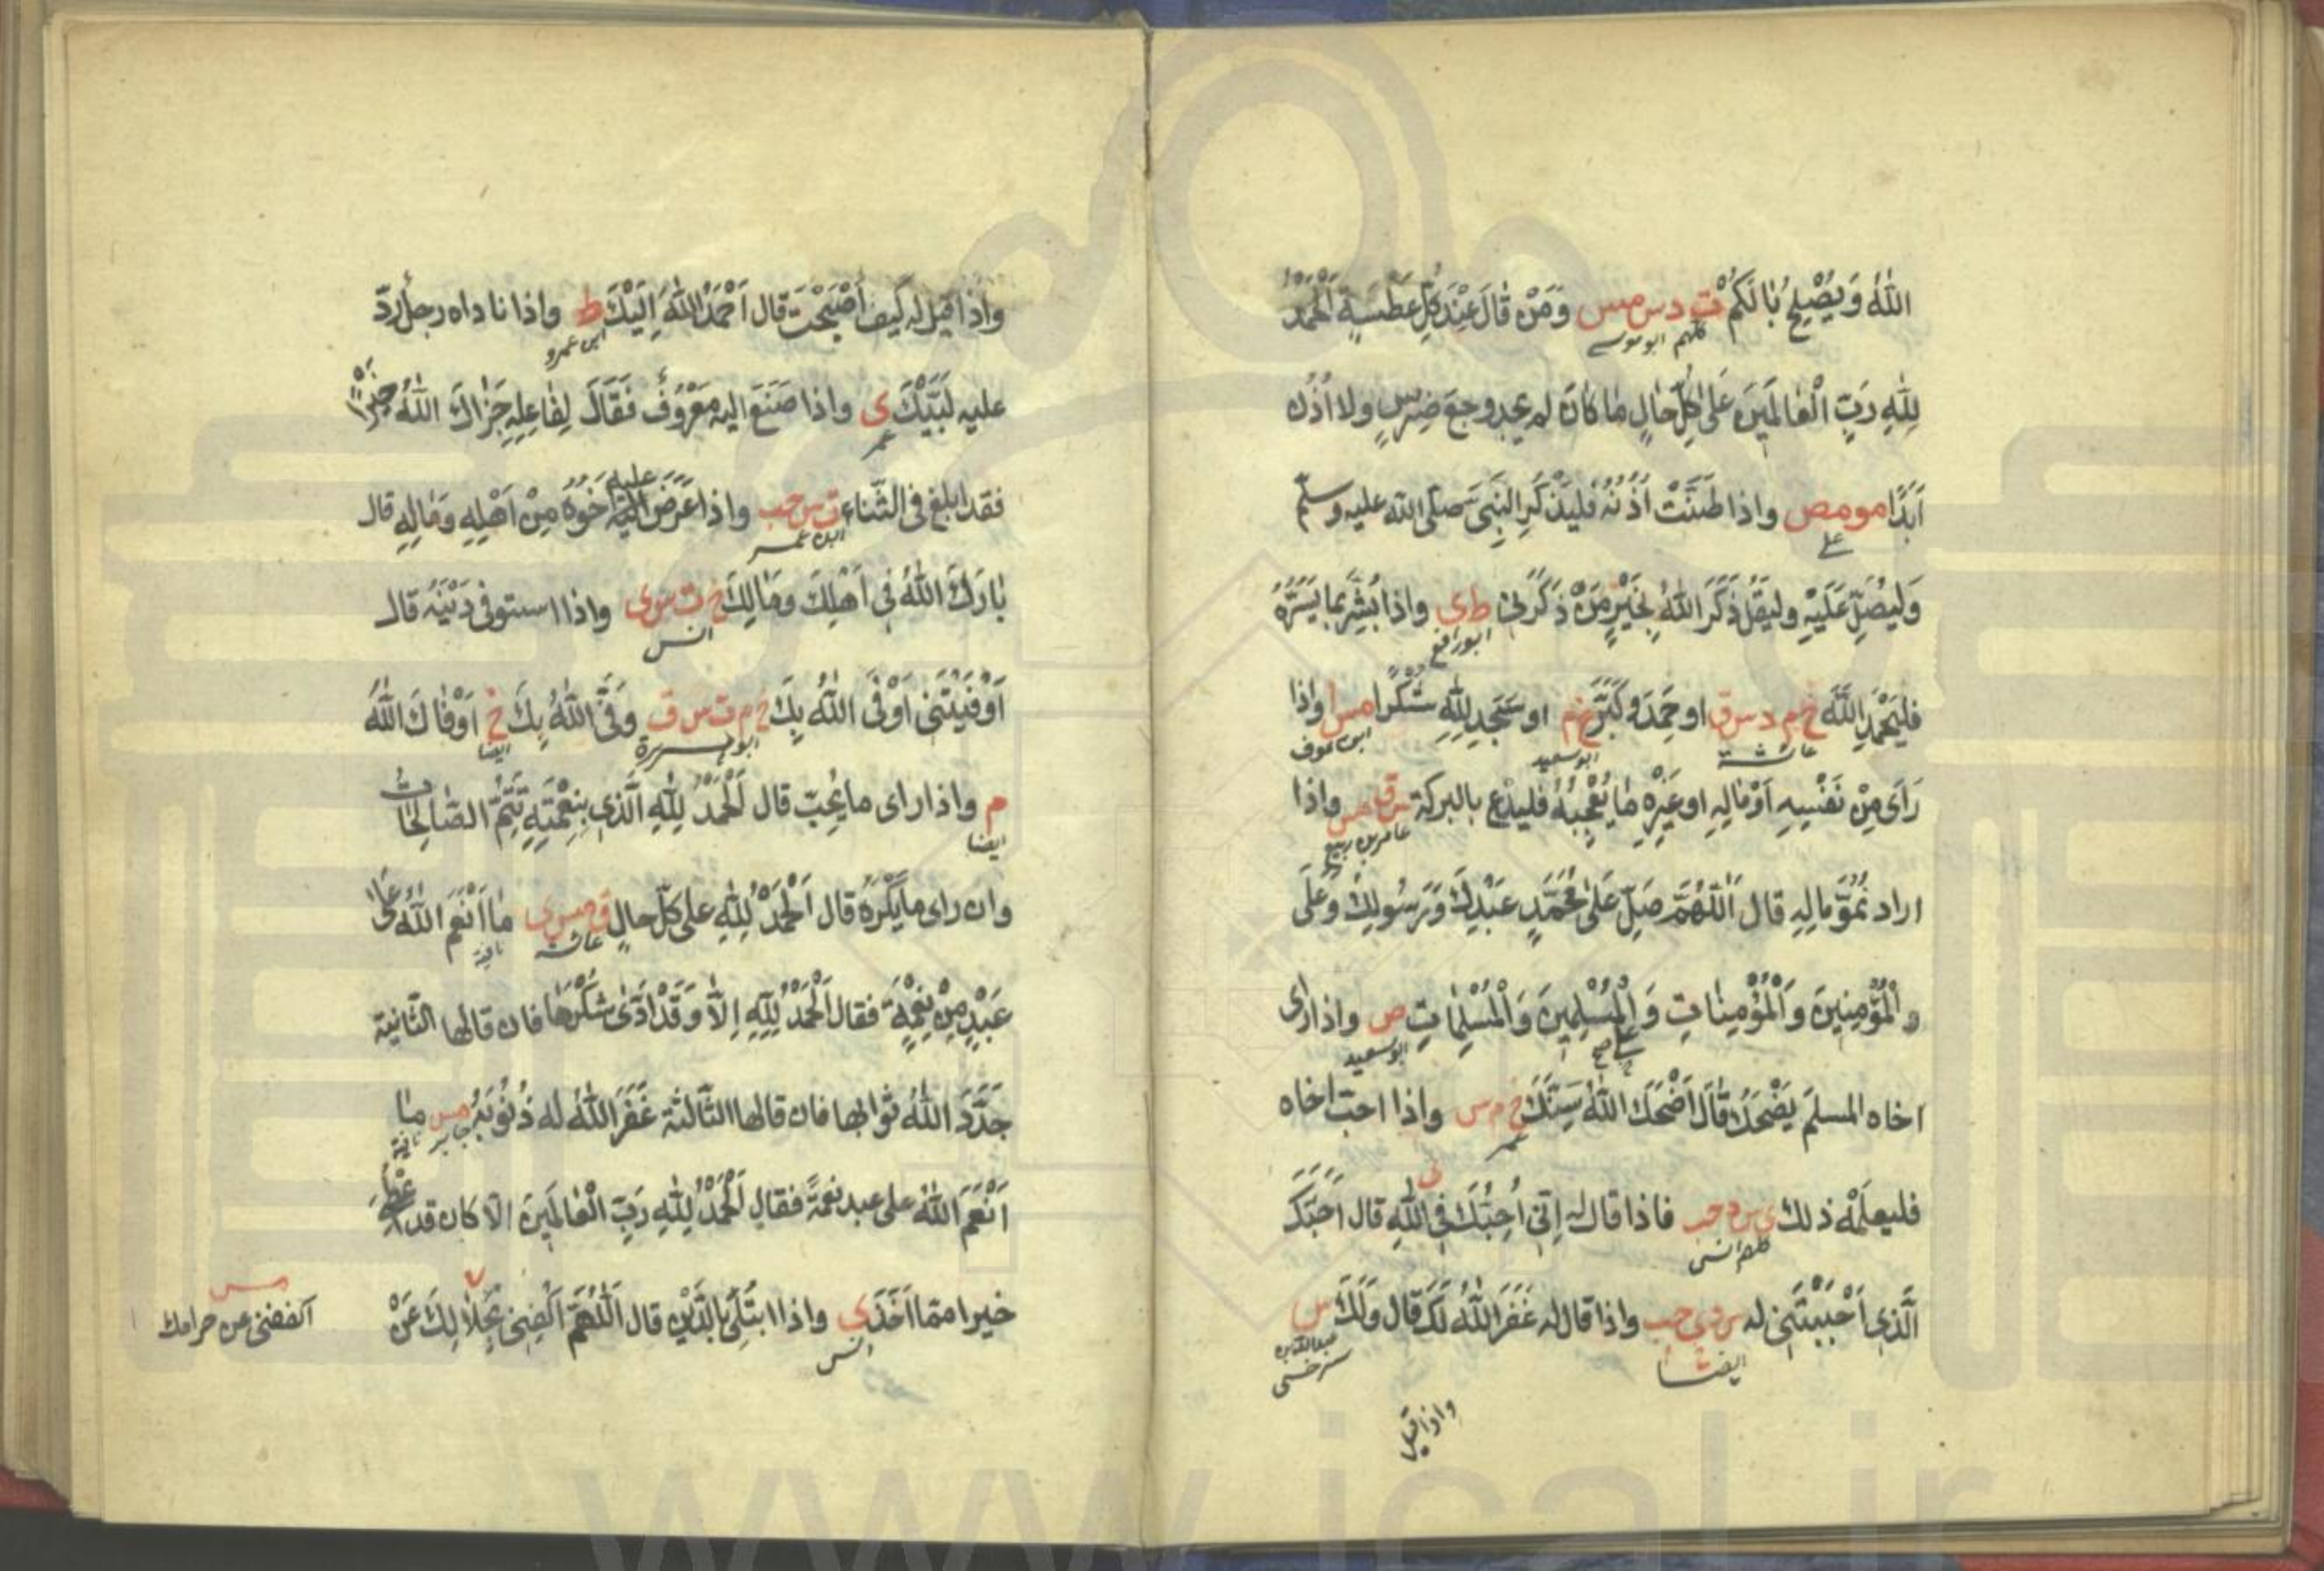 اللّٰهُ وَيُصْلِحُ بَالَكُمْ ت د س مس وَمَنْ قَالَ عِنْدَ كُلِّ عَطْسَةٍ اَلْحَمْدُ
كلهم ابو موسے
لِلّٰهِ رَبِّ الْعَالَمِينَ عَلٰى كُلِّ حَالٍ مَا كَانَ لم يجد وجع ضِرْسٍ ولا اُذُن
اَبَدًا مو مص واذا طَنَّتْ اُذُنُهُ فليَذْكُرِ النَّبِىَّ صَلّى الله عليه وسلّم
علے
وَليُصَلِّ عَلَيْهِ وليَقُلْ ذَكَرَ اللّٰهُ بِخَيْرٍ مَنْ ذَكَرَنِى ط ى واذا بُشِّرَ بما يَسُرُّهُ
ابو رافع
فليَحْمَدِ اللّٰهَ خ م د س ق او حَمِدَ وَكَبَّرَ خ م او سَجَدَ لِلّٰهِ شُكْرًا مس واذا
عائشة ابو سعيد ابن عوف
رَاَى مِنْ نَفْسِهِ اَوْ مَالِهِ او غَيْرِهِ مَا يُعْجِبُهُ فليدع بالبركة س ق مس واذا
عامر بن ربيع
اراد نُمُوَّ مَالِهِ قال اَللّٰهُمَّ صَلِّ عَلٰى مُحَمَّدٍ عَبْدِكَ وَرَسُولِكَ وَعَلَى
الْمُؤْمِنِينَ وَالْمُؤْمِنَاتِ وَالْمُسْلِمِينَ وَالْمُسْلِمَاتِ ص واذا راى
ابو سعيد
اخاه المسلمَ يَضْحَكُ قَالَ اَضْحَكَ اللّٰهُ سِنَّكَ خ م س واذا احب اخاه
عمر
فليعلمْه ذلك ى س د حب فاذا قال له اِنِّى اُحِبُّكَ فِى اللّٰهِ قال اَحَبَّكَ
كلهم انس
الَّذِى اَحْبَبْتَنِى له س د ى حب واذا قال له غَفَرَ اللّٰهُ لَكَ قال وَلَكَ س
ايضا عبد الله بن سرخس
واذا قيل
واذا قيل له كَيفَ اَصْبَحْتَ قال اَحْمَدُ اللّٰهَ اِلَيْكَ ط واذا ناداه رجل ردّ
ابن عمرو
عليه لَبَّيْكَ ى واذا صَنَعَ اليه مَعْرُوفٌ فَقَالَ لِفَاعِلِهِ جَزَاكَ اللّٰهُ خيرًا
عمر
فقد ابلغ فى الثّناء ت س حب واذا عَرَضَ عليه اَخُوهُ مِنْ اَهْلِهِ وَمَالِهِ قال
ابن عمر
بَارَكَ اللّٰهُ فِى اَهْلِكَ وَمَالِكَ خ ت س ى واذا استوفى دَيْنَهُ قال
انس
اَوْفَيْتَنِى اَوْفَى اللّٰهُ بِكَ خ م ت س ق وَفَى اللّٰهُ بِكَ خ اَوْفَاكَ اللّٰهُ
ابو هريرة ايضا
م واذا راى ما يُحِبّ قال اَلْحَمْدُ لِلّٰهِ الَّذِى بِنِعْمَتِهِ تَتِمُّ الصَّالِحَاتُ
ايضا
وان راى ما يَكْرَهُ قال اَلْحَمْدُ لِلّٰهِ على كلّ حالٍ ق مس ى مَا اَنْعَمَ اللّٰهُ عَلٰى
عائشة
عَبْدٍ مِنْ نِعْمَةٍ فقال اَلْحَمْدُ لِلّٰهِ اِلَّا وَقَدْ اَدّٰى شُكْرَهَا فان قالها الثّانية
جَدَّدَ اللّٰهُ ثوابها فان قالها الثّالثة غَفَرَ اللّٰهُ له ذُنُوبَهُ مس مَا
جابر
اَنْعَمَ اللّٰهُ على عبد نعمةً فقال اَلْحَمْدُ لِلّٰهِ رَبِّ الْعَالَمِينَ الّا كان قد اعطى
خيرا مما اَخَذَ ى واذا ابتُلِىَ بالدَّيْنِ قال اَللّٰهُمَّ اكْفِنِى بِحَلَالِكَ عَنْ
انس
مس
اكففنى عن حرامك
www.ical.ir